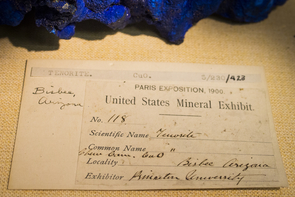 TENORITE. CuO.
Bisbee,
Arizona
PARIS EXPOSITION, 1900.
United States Mineral Exhibit.
No. 118
Scientific Name Tenorite
Common Name "
Chem. Com. CuO
Locality Bisbee Arizona
Exhibitor Princeton University